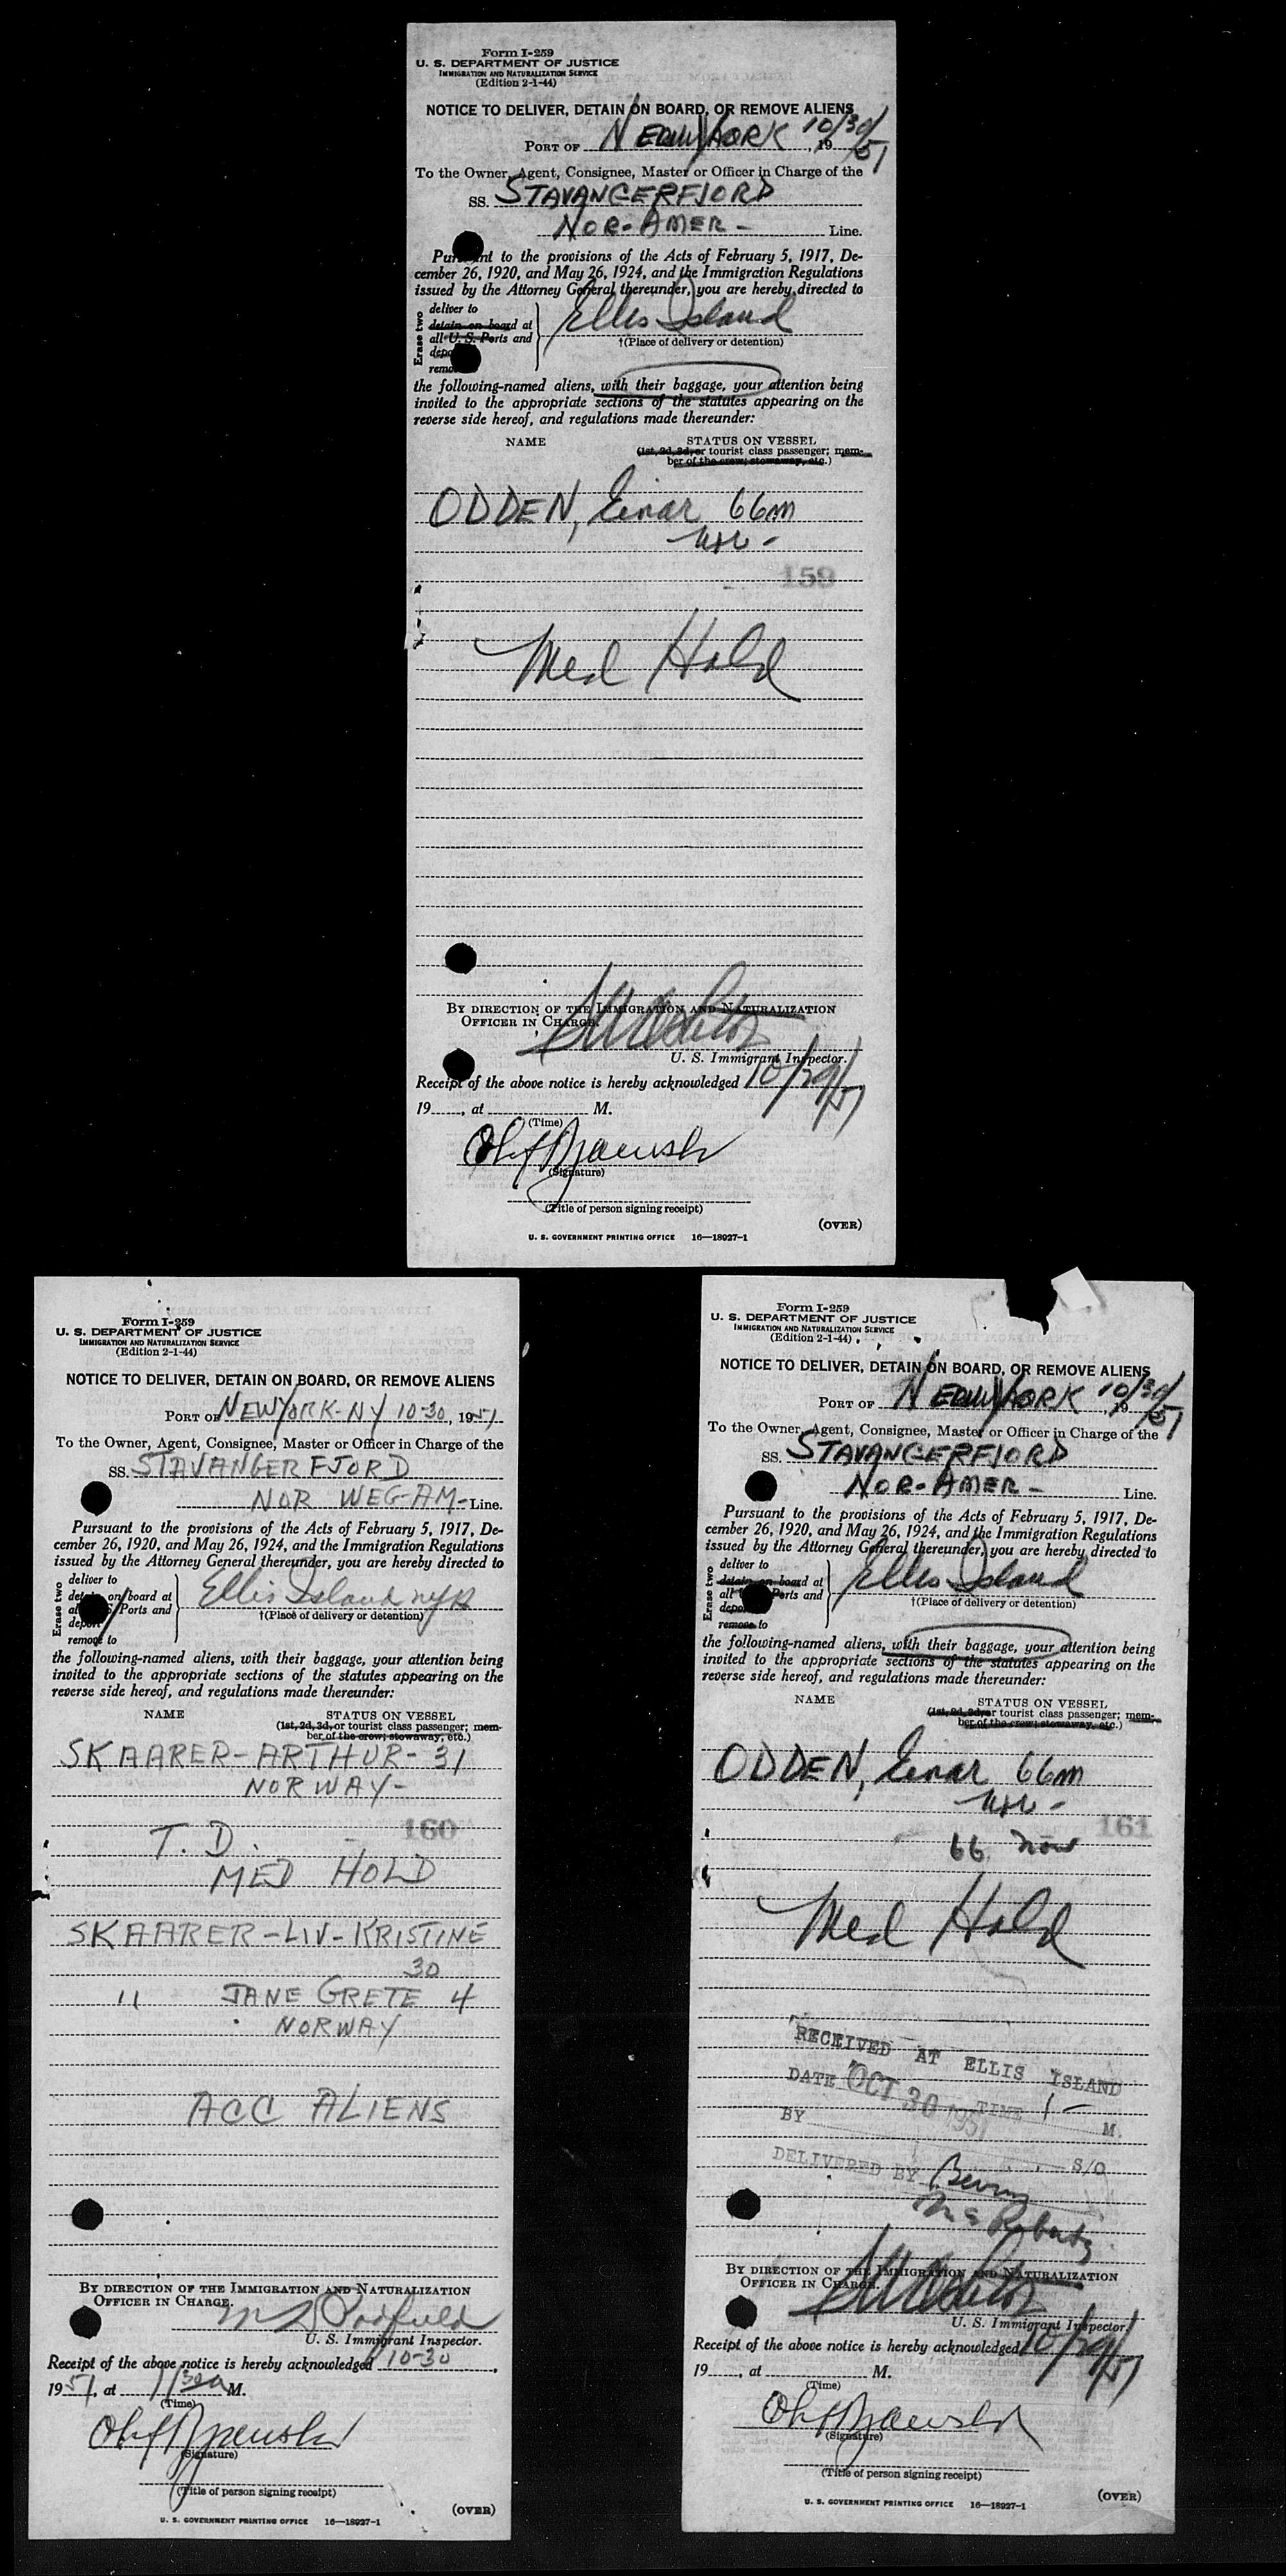 Form I-259
U. S. DEPARTMENT OF JUSTICE
IMMIGRATION AND NATURALIZATION SERVICE
(Edition 2-1-44)
NOTICE TO DELIVER, DETAIN ON BOARD, OR REMOVE ALIENS
PORT OF NEW YORK 10/30/, 19 51
To the Owner, Agent, Consignee, Master or Officer in Charge of the
SS. STAVANGERFJORD
NOR-AMER- Line.
Pursuant to the provisions of the Acts of February 5, 1917, De-
cember 26, 1920, and May 26, 1924, and the Immigration Regulations
issued by the Attorney General thereunder, you are hereby directed to
Erase two
deliver to
detain on board at
all U. S. Ports and
remo
Ellis Island
†(Place of delivery or detention)
the following-named aliens, with their baggage, your attention being
invited to the appropriate sections of the statutes appearing on the
reverse side hereof, and regulations made thereunder:
NAME STATUS ON VESSEL
(1st, 2d, 3d, or tourist class passenger; mem-
ber of the crew; stowaway, etc.)
ODDEN, Einar 66m
159
Med Hold
BY DIRECTION OF THE IMMIGRATION AND NATURALIZATION
OFFICER IN CHARGE.
U. S. Immigrant Inspector.
Receipt of the above notice is hereby acknowledged 10/29/51
19 , at M.
(Time)
(Signature)
(Title of person signing receipt)
(OVER)
U. S. GOVERNMENT PRINTING OFFICE 16—18927-1
Form I-259
U. S. DEPARTMENT OF JUSTICE
IMMIGRATION AND NATURALIZATION SERVICE
(Edition 2-1-44)
NOTICE TO DELIVER, DETAIN ON BOARD, OR REMOVE ALIENS
PORT OF NEW YORK-NY 10-30, 1951
To the Owner, Agent, Consignee, Master or Officer in Charge of the
SS. STAVANGER FJORD
NOR WEG-AM- Line.
Pursuant to the provisions of the Acts of February 5, 1917, De-
cember 26, 1920, and May 26, 1924, and the Immigration Regulations
issued by the Attorney General thereunder, you are hereby directed to
Erase two
deliver to
detain on board at
Ports and
deport
remove to
Ellis Island
†(Place of delivery or detention)
the following-named aliens, with their baggage, your attention being
invited to the appropriate sections of the statutes appearing on the
reverse side hereof, and regulations made thereunder:
NAME STATUS ON VESSEL
(1st, 2d, 3d, or tourist class passenger; mem-
ber of the crew; stowaway, etc.)
SKAARER-ARTHUR-31
NORWAY-
160
T. D.
MED HOLD
SKAARER-LIV-KRISTINE
30
" JANE GRETE 4
NORWAY
ACC ALIENS
BY DIRECTION OF THE IMMIGRATION AND NATURALIZATION
OFFICER IN CHARGE.
U. S. Immigrant Inspector.
Receipt of the above notice is hereby acknowledged 10-30,
1951, at 11 30 a M.
(Time)
(Signature)
(Title of person signing receipt)
(OVER)
U. S. GOVERNMENT PRINTING OFFICE 16—18927-1
Form I-259
U. S. DEPARTMENT OF JUSTICE
IMMIGRATION AND NATURALIZATION SERVICE
(Edition 2-1-44)
NOTICE TO DELIVER, DETAIN ON BOARD, OR REMOVE ALIENS
PORT OF NEW YORK 10/30/, 19 51
To the Owner, Agent, Consignee, Master or Officer in Charge of the
SS. STAVANGERFJORD
NOR-AMER- Line.
Pursuant to the provisions of the Acts of February 5, 1917, De-
cember 26, 1920, and May 26, 1924, and the Immigration Regulations
issued by the Attorney General thereunder, you are hereby directed to
Erase two
deliver to
detain on board at
all Ports and
remove to
Ellis Island
†(Place of delivery or detention)
the following-named aliens, with their baggage, your attention being
invited to the appropriate sections of the statutes appearing on the
reverse side hereof, and regulations made thereunder:
NAME STATUS ON VESSEL
(1st, 2d, 3d, or tourist class passenger; mem-
ber of the crew; stowaway, etc.)
ODDEN, Einar 66m
161
66 nor
Med Hold
RECEIVED AT ELLIS ISLAND
DATE OCT 30 1951 TIME 1- M.
BY
S/O
DELIVERED BY
McRoberts
BY DIRECTION OF THE IMMIGRATION AND NATURALIZATION
OFFICER IN CHARGE.
U. S. Immigrant Inspector.
Receipt of the above notice is hereby acknowledged 10/29/51
19 , at M.
(Time)
(Signature)
(Title of person signing receipt)
(OVER)
U. S. GOVERNMENT PRINTING OFFICE 16—18927-1